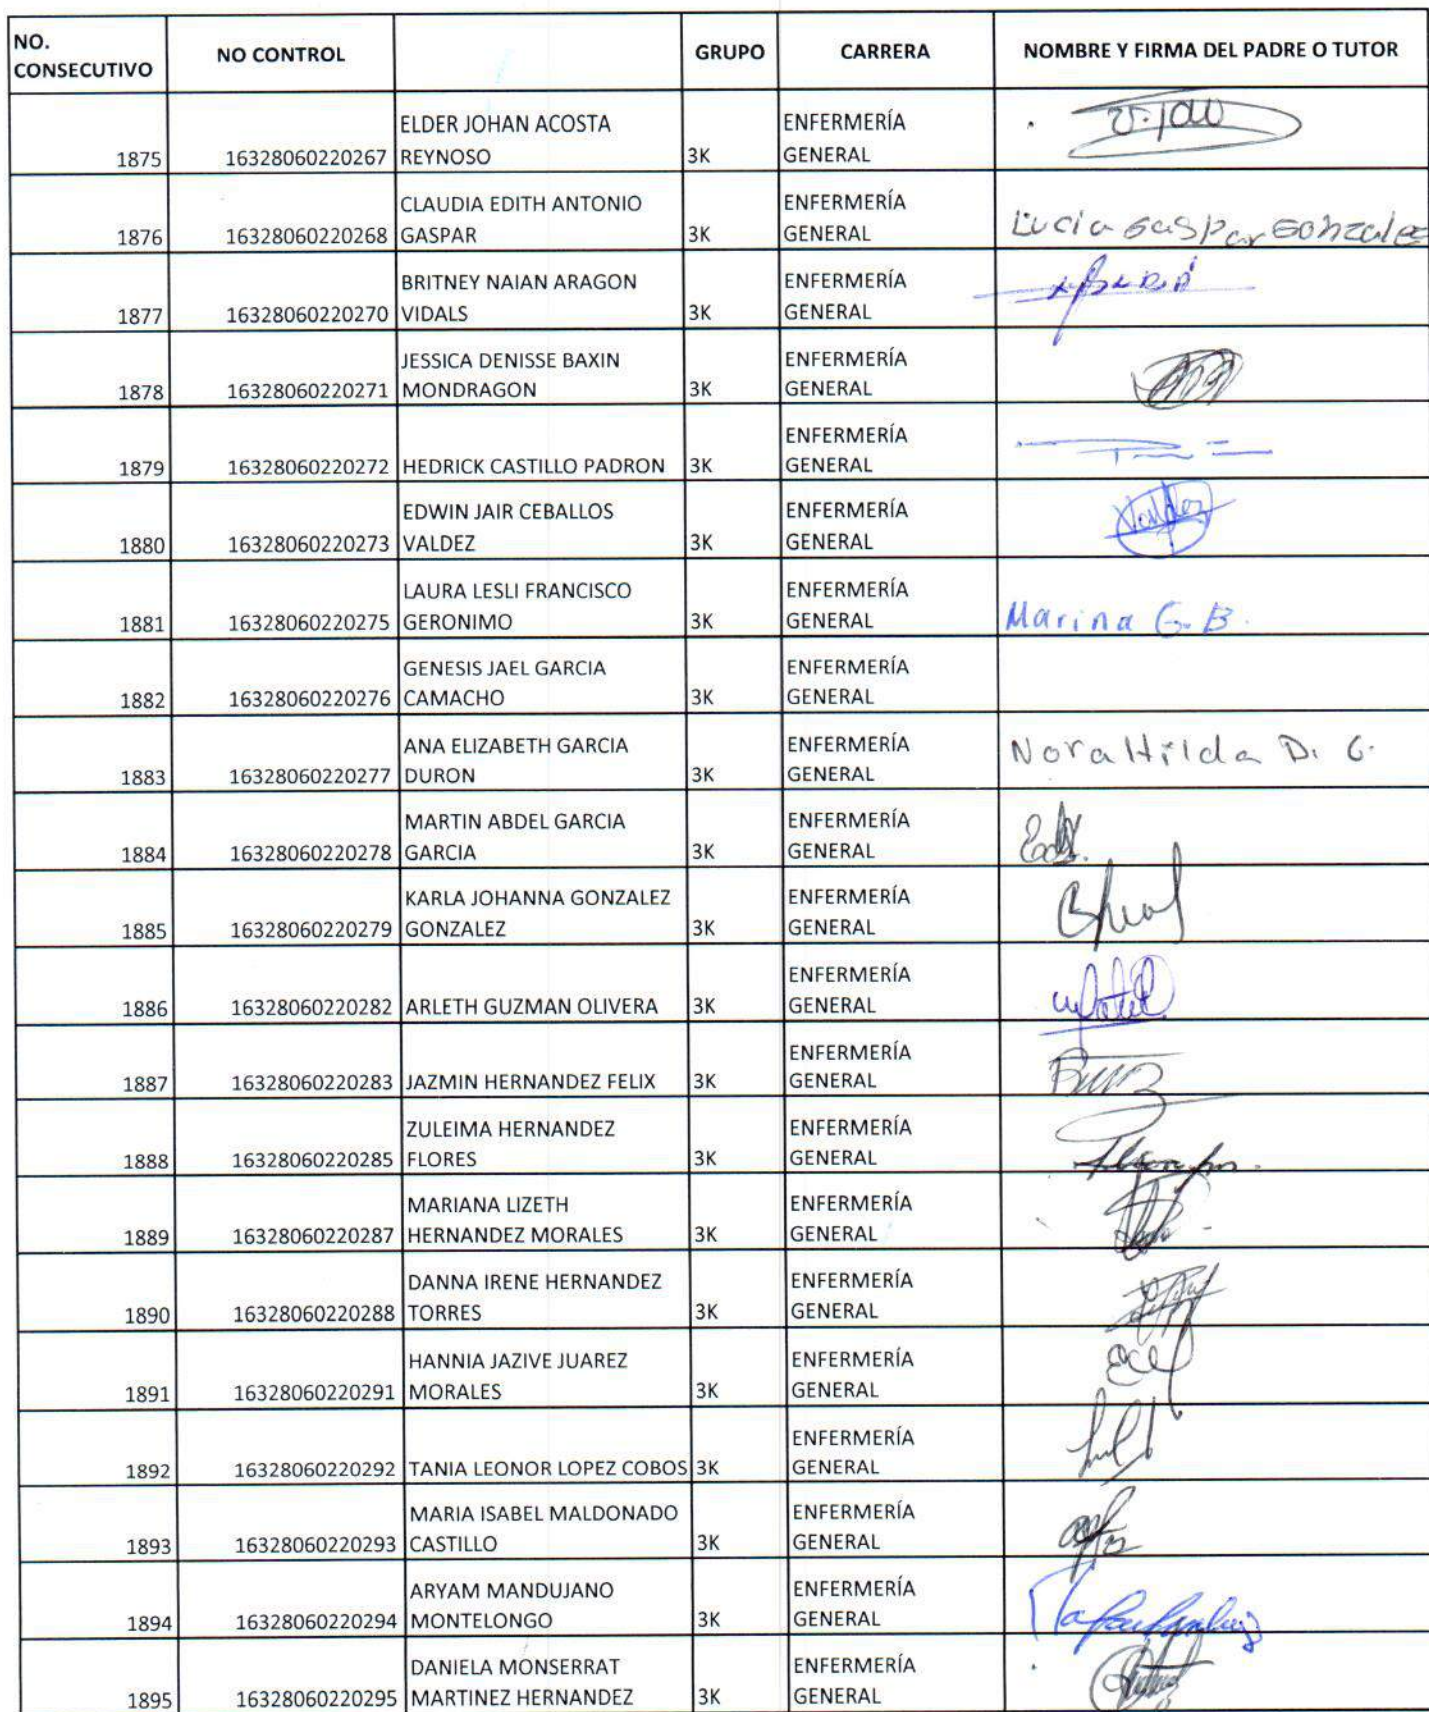 NO. CONSECUTIVO NO CONTROL GRUPO CARRERA NOMBRE Y FIRMA DEL PADRE O TUTOR
1875 16328060220267 ELDER JOHAN ACOSTA REYNOSO 3K ENFERMERÍA GENERAL
1876 16328060220268 CLAUDIA EDITH ANTONIO GASPAR 3K ENFERMERÍA GENERAL Lucia Gaspar Gonzalez
1877 16328060220270 BRITNEY NAIAN ARAGON VIDALS 3K ENFERMERÍA GENERAL
1878 16328060220271 JESSICA DENISSE BAXIN MONDRAGON 3K ENFERMERÍA GENERAL
1879 16328060220272 HEDRICK CASTILLO PADRON 3K ENFERMERÍA GENERAL
1880 16328060220273 EDWIN JAIR CEBALLOS VALDEZ 3K ENFERMERÍA GENERAL
1881 16328060220275 LAURA LESLI FRANCISCO GERONIMO 3K ENFERMERÍA GENERAL Marina G. B.
1882 16328060220276 GENESIS JAEL GARCIA CAMACHO 3K ENFERMERÍA GENERAL
1883 16328060220277 ANA ELIZABETH GARCIA DURON 3K ENFERMERÍA GENERAL Nora Hilda D. G.
1884 16328060220278 MARTIN ABDEL GARCIA GARCIA 3K ENFERMERÍA GENERAL
1885 16328060220279 KARLA JOHANNA GONZALEZ GONZALEZ 3K ENFERMERÍA GENERAL
1886 16328060220282 ARLETH GUZMAN OLIVERA 3K ENFERMERÍA GENERAL
1887 16328060220283 JAZMIN HERNANDEZ FELIX 3K ENFERMERÍA GENERAL
1888 16328060220285 ZULEIMA HERNANDEZ FLORES 3K ENFERMERÍA GENERAL
1889 16328060220287 MARIANA LIZETH HERNANDEZ MORALES 3K ENFERMERÍA GENERAL
1890 16328060220288 DANNA IRENE HERNANDEZ TORRES 3K ENFERMERÍA GENERAL
1891 16328060220291 HANNIA JAZIVE JUAREZ MORALES 3K ENFERMERÍA GENERAL
1892 16328060220292 TANIA LEONOR LOPEZ COBOS 3K ENFERMERÍA GENERAL
1893 16328060220293 MARIA ISABEL MALDONADO CASTILLO 3K ENFERMERÍA GENERAL
1894 16328060220294 ARYAM MANDUJANO MONTELONGO 3K ENFERMERÍA GENERAL
1895 16328060220295 DANIELA MONSERRAT MARTINEZ HERNANDEZ 3K ENFERMERÍA GENERAL